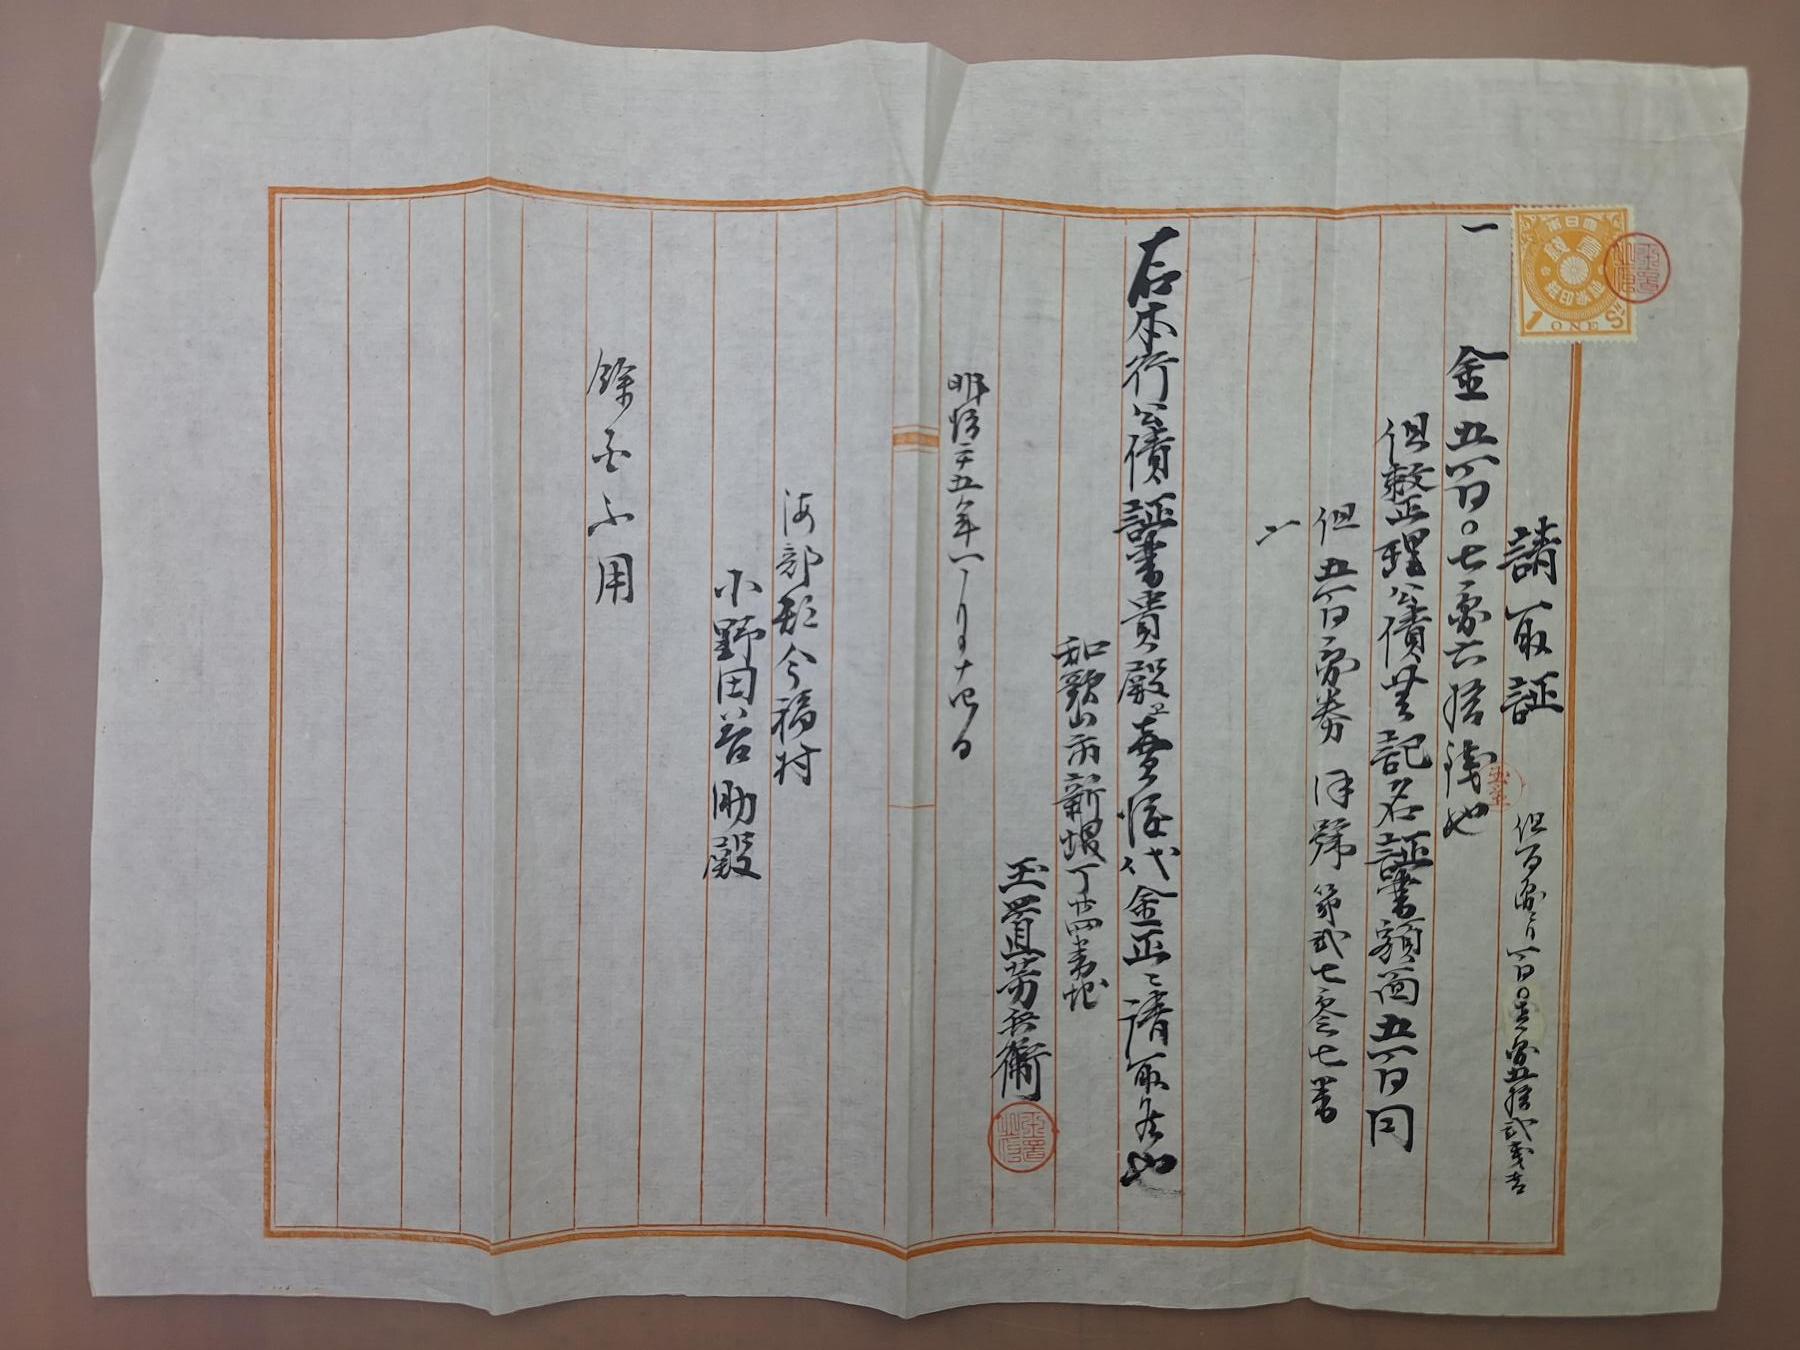 大日本帝國
壹錢
証券印紙
1 ONE Sn
請取証
但百円ニ付百〇壱円五拾弐銭書
一 金五百〇七円六拾銭也
但整理公債無記名証書額面五百円
但五百円券 ほ号第弐七零七番
右本行公債証書貴殿江売渡代金正ニ請取候也
和歌山市新堀丁廿四番地
玉置芳兵衛
明治二十五年一月十四日
海部郡今福村
小野田若助殿
余白不用